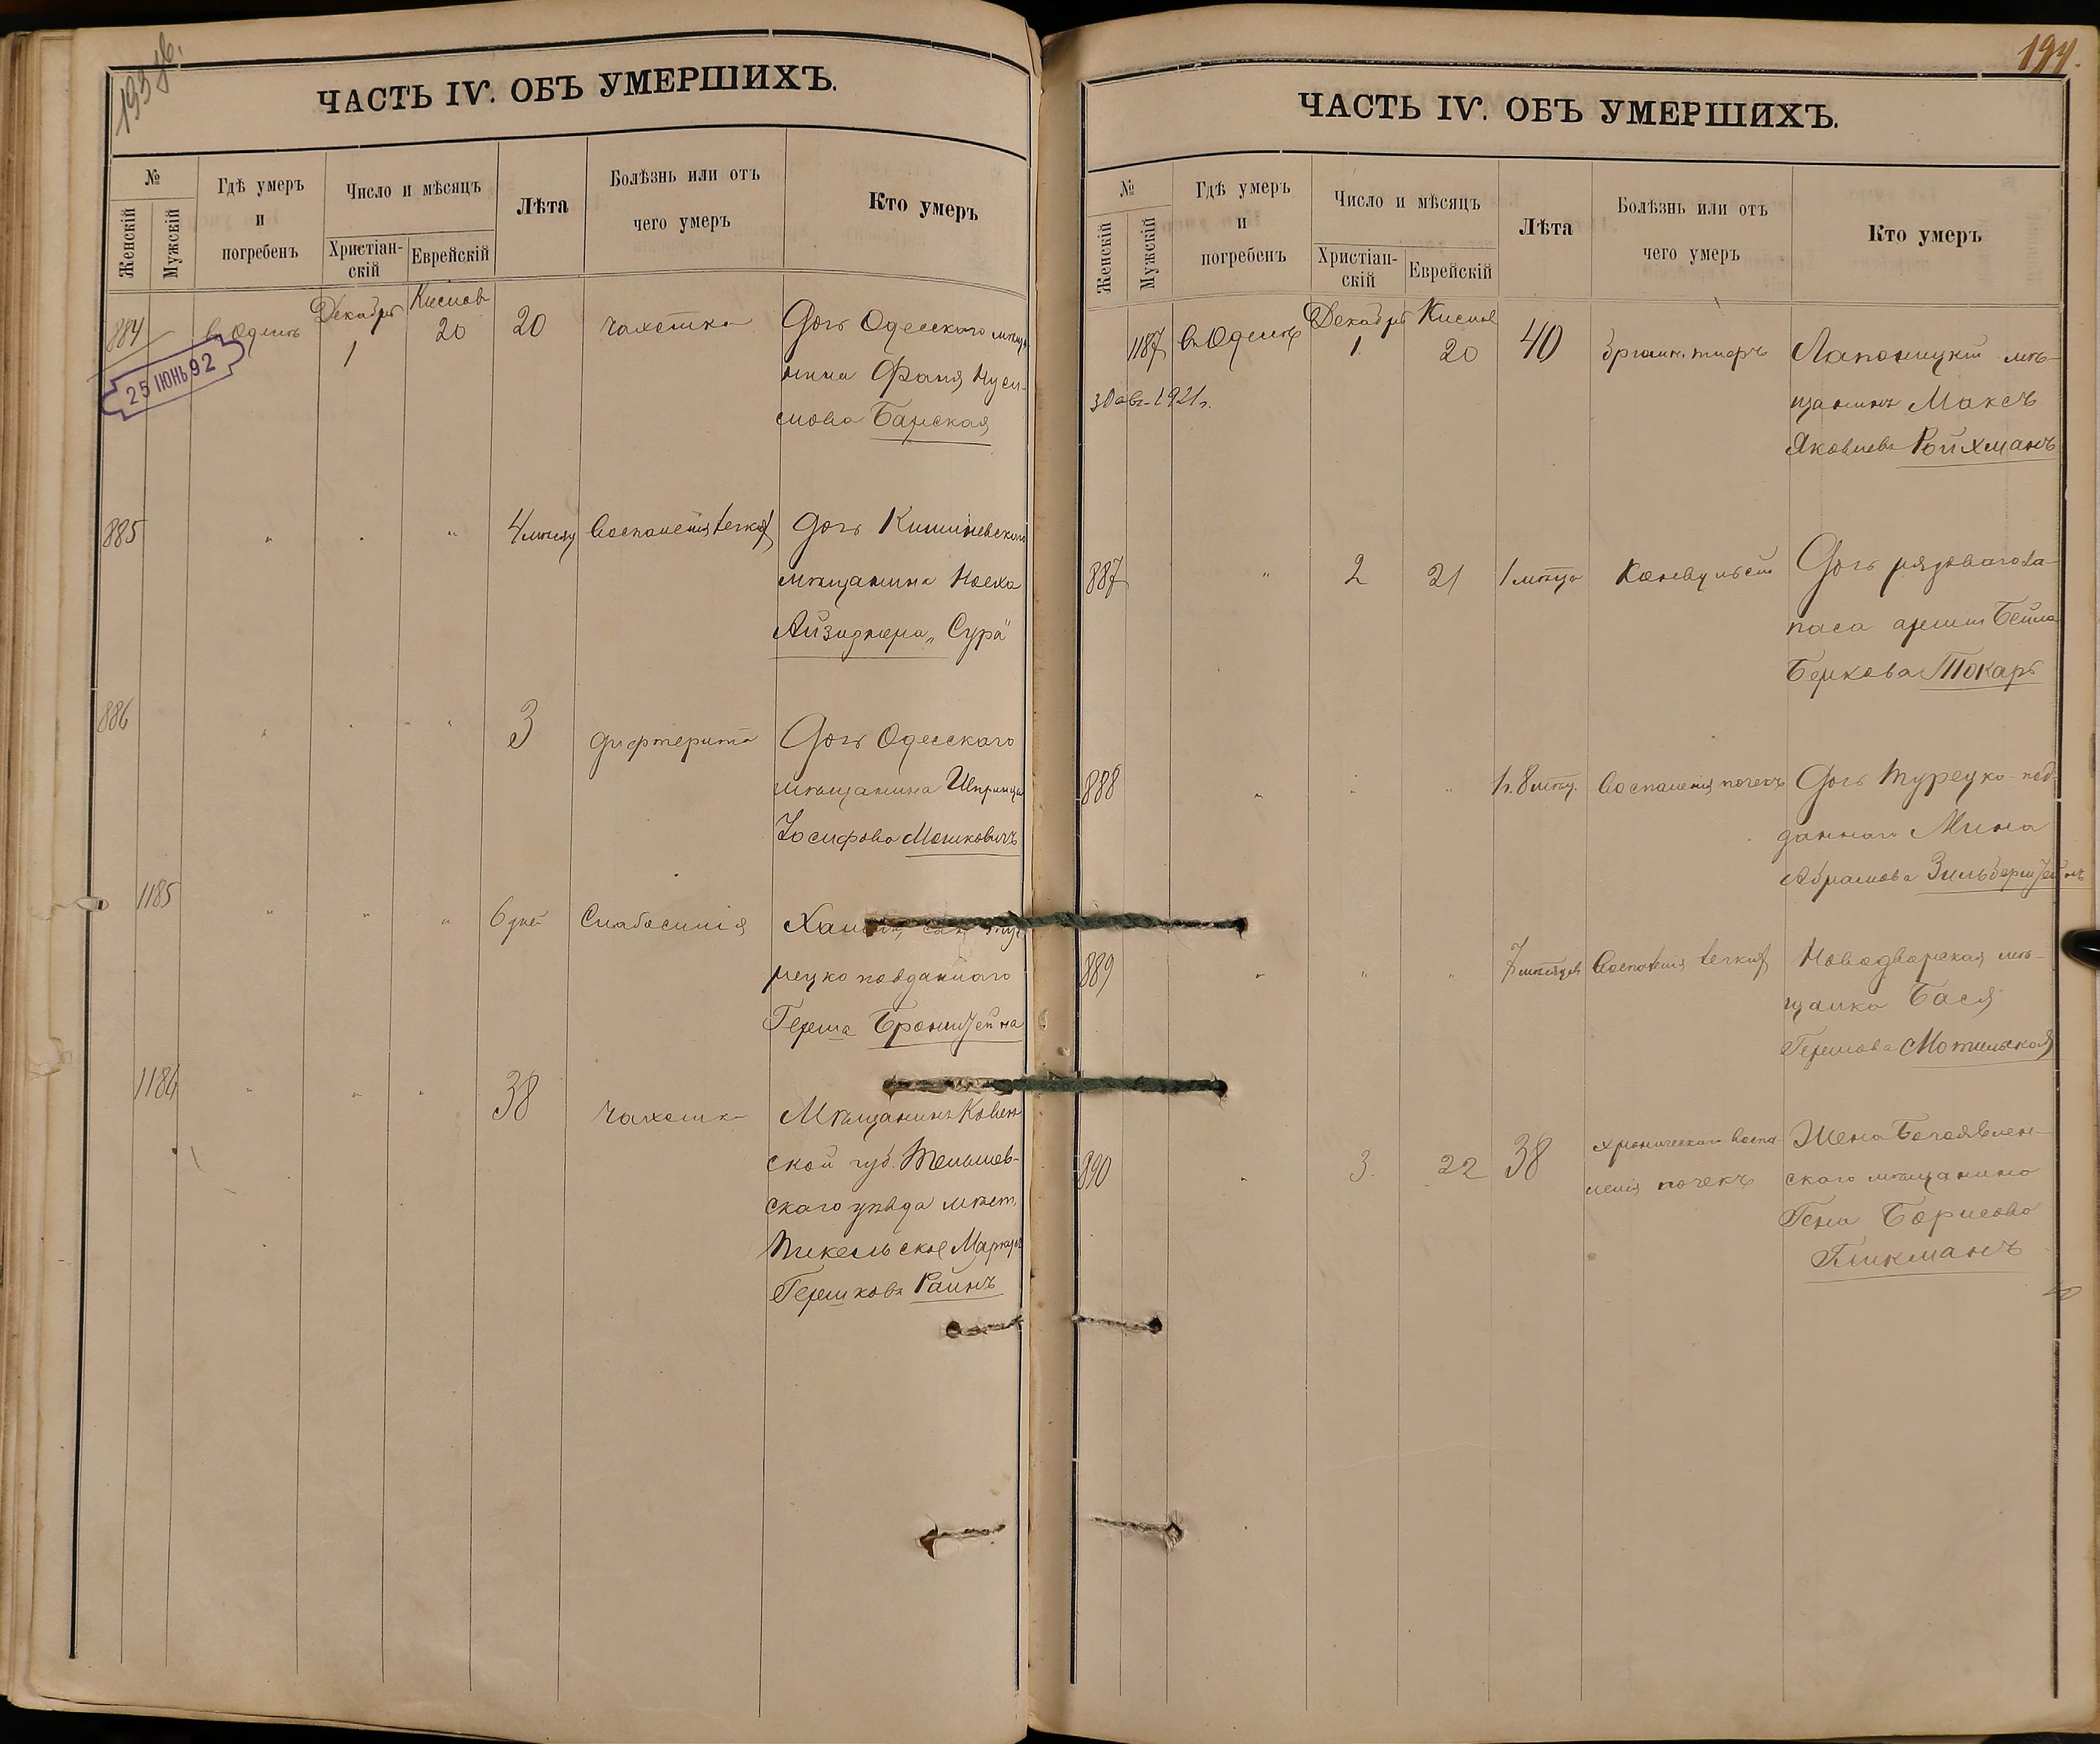 193 об.
ЧАСТЬ IV. ОБЪ УМЕРШИХЪ.
№
Женскій
Мужскій
Гдѣ умеръ
и
погребенъ
Число и мѣсяцъ
Христіан-
скій
Еврейскій
Лѣта
Болѣзнь или отъ
чего умеръ
Кто умеръ
884
въ Одессѣ
Декабрь
1
Кислев
20
20
Чахотка
Дочь Одесского мѣща
нина Фаня Нуси-
мова Барская
25 ІЮНЬ 92
885
"
"
"
4 мѣсяц
Воспаленія легких
Дочь Кишиневского
мѣщанина Ноеха
Айзиднера „Сура"
886
"
"
"
3
Дифтерита
Дочь Одесского
мѣщанина Шпринца
Іосифова Мошковичъ
1185
"
"
"
6 дней
Слабосилія
Хаим сын ту
рецко подданного
Герша Бронштейна
1186
"
"
"
38
Чахотка
Мѣщанинъ Ковен
ской губ. Тельшев-
ского уѣзда мѣст.
Пикельское
Гершковъ Раинъ
194.
ЧАСТЬ IV. ОБЪ УМЕРШИХЪ.
№
Женскій
Мужскій
Гдѣ умеръ
и
погребенъ
Число и мѣсяцъ
Христіан-
скій
Еврейскій
Лѣта
Болѣзнь или отъ
чего умеръ
Кто умеръ
1187
въ Одессѣ
Декабрь
1.
Кислев
20
40
тифъ
мѣ-
щанинъ Максъ
Яковлевъ Ройхманъ
30 авг. 1921 г.
887
"
2
21
1 мѣсяц
Конвульсіи
Дочь рядового за-
паса арміи Бейла
Беркова Токарь
888
"
"
"
1 г. 8 мѣсяц.
Воспаленія почекъ
Дочь Турецко-под-
данного Мина
Абрамова Зильберштейнъ
889
"
"
"
7 мѣсяцев
Воспаленія легких
Новодворская мѣ-
щанка Бася
Гершова Мотильская
890
"
3.
22
38
Хроническаго воспа-
ленія почекъ
Жена Богоявлен-
ского мѣщанина
Геня Борисова
Гликманъ